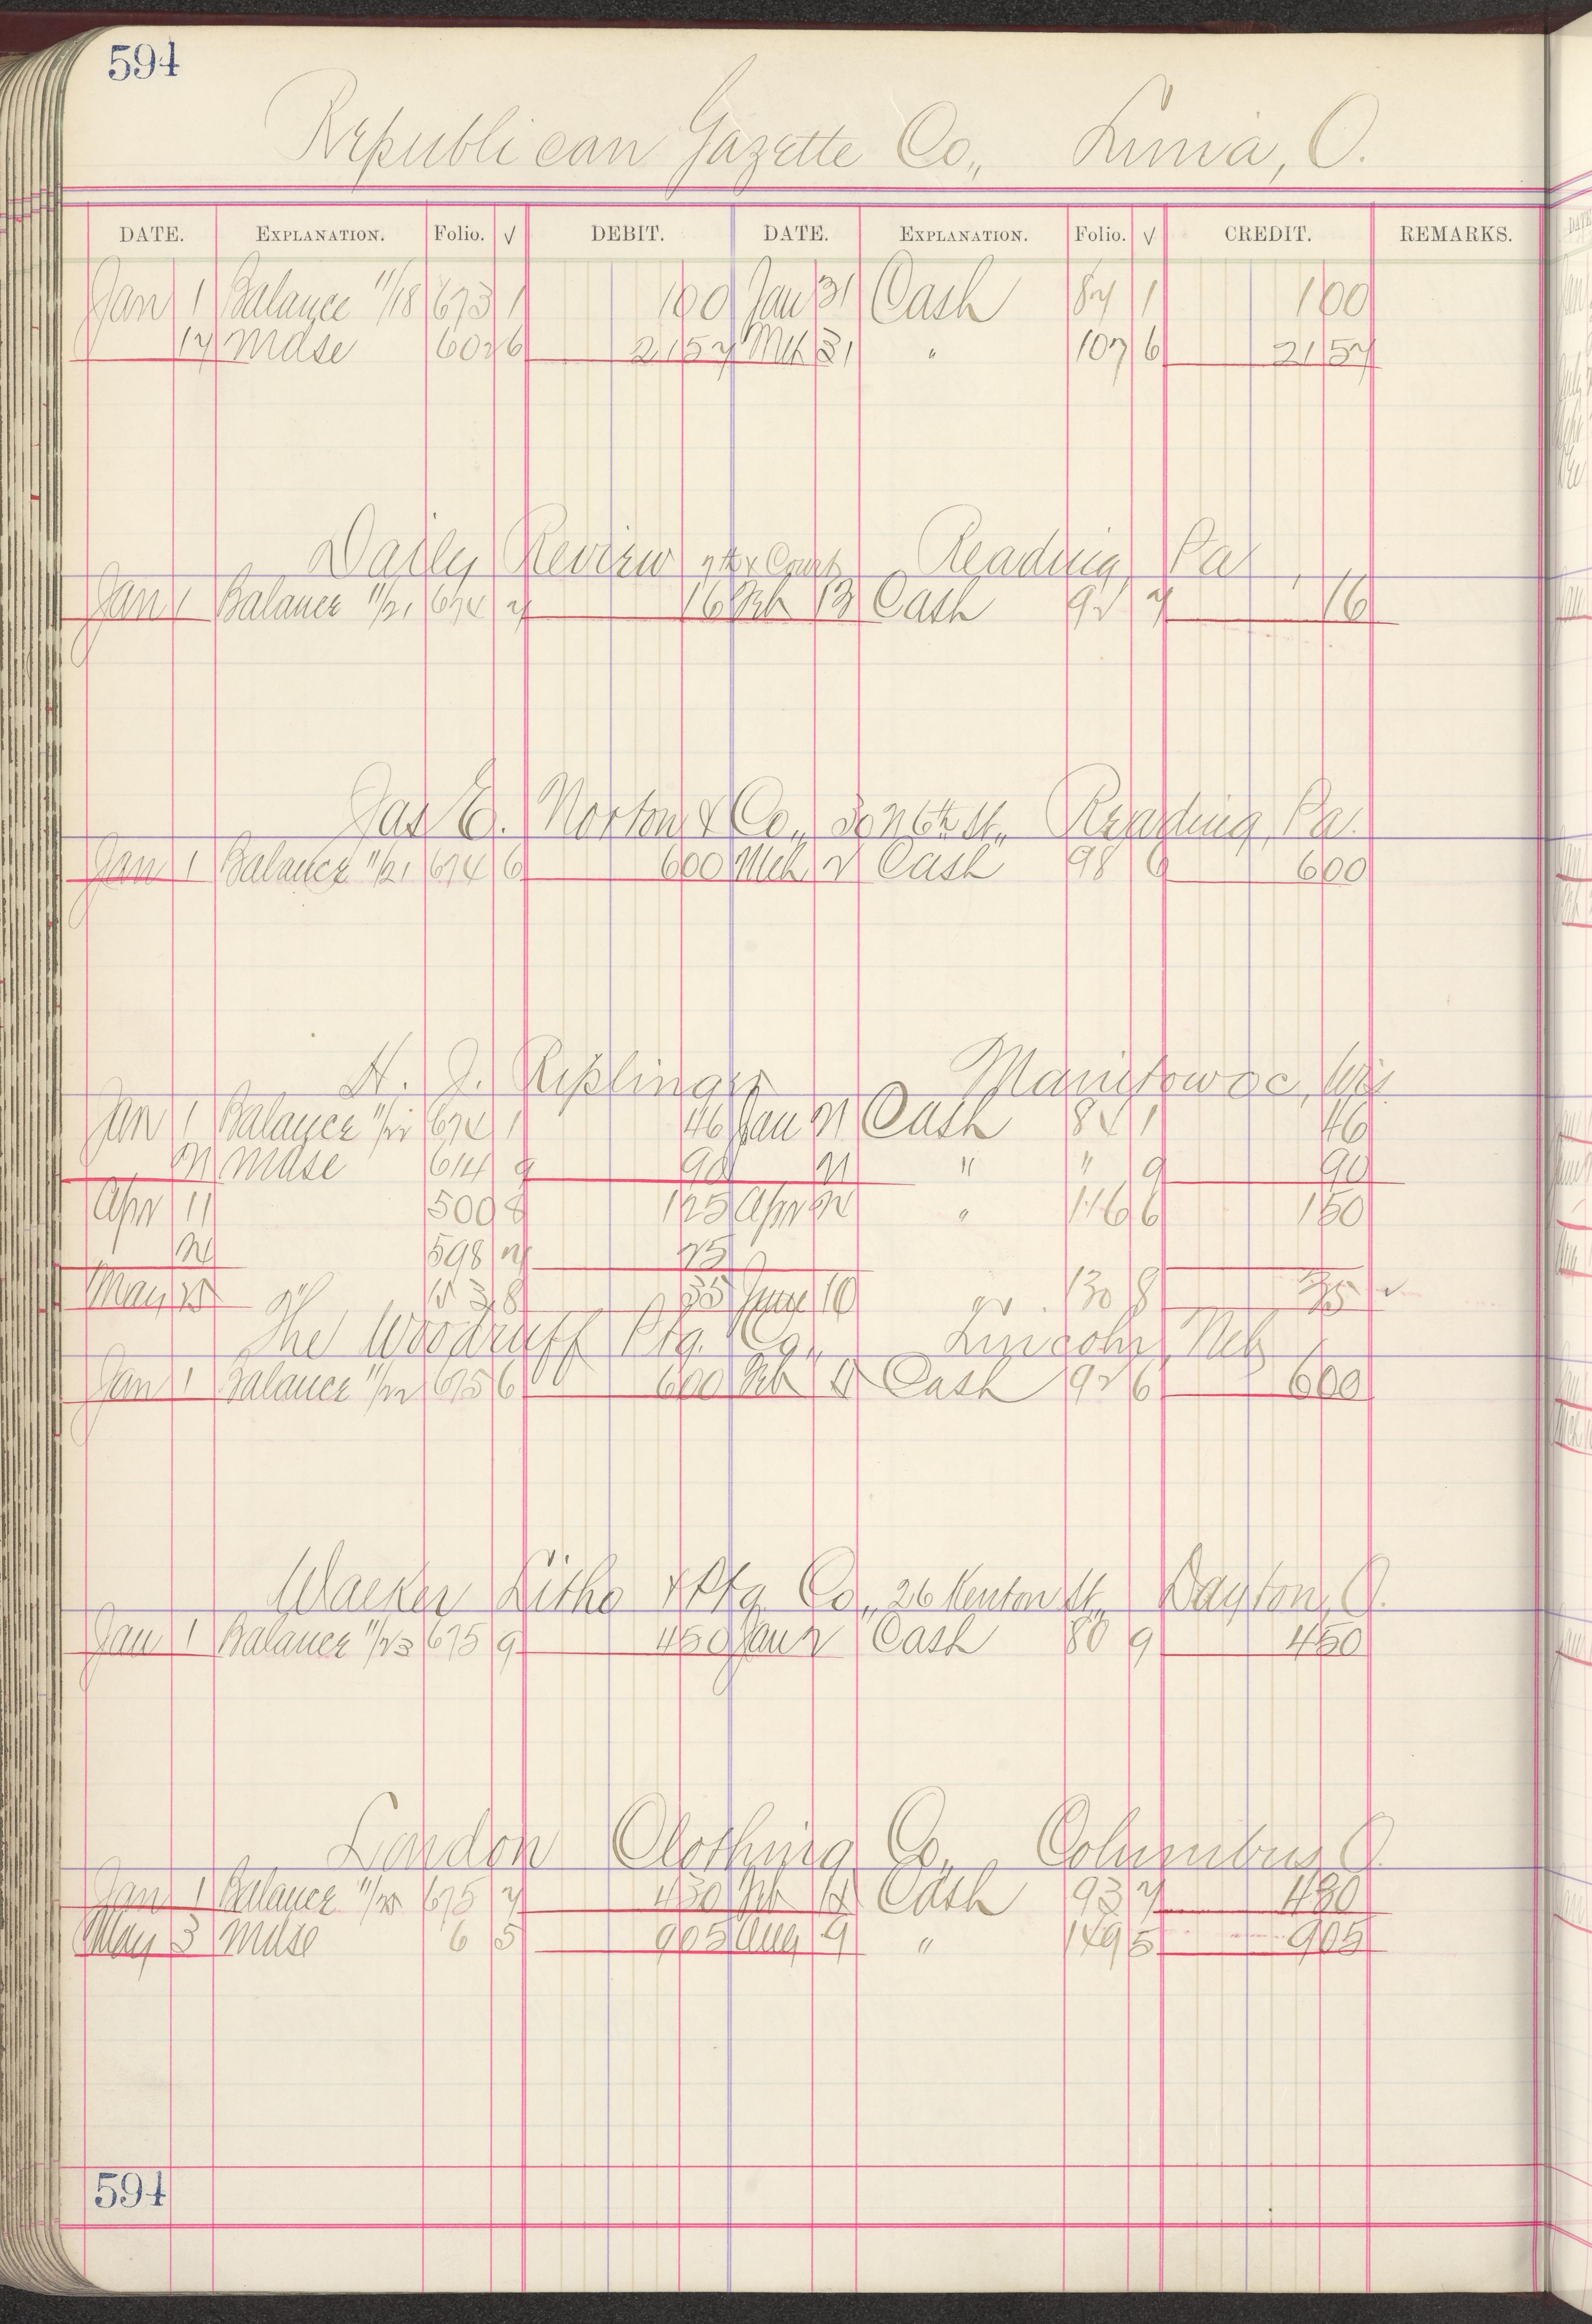 594
Republican Gazette Co., Lima, O.
DATE. EXPLANATION. Folio. √ DEBIT. DATE. EXPLANATION. Folio. √ CREDIT. REMARKS.
Jan 1 Balance 11/18 673 1 1 00 Jan 31 Cash 87 1 1 00
17 Mdse 602 6 21 57 Mch 31 " 107 6 21 57
Daily Review Court Reading, Pa
Jan 1 Balance 11/21 674 7 16 Feb 13 Cash 92 7 16
Jas E. Norton & Co., 30 N 6th St., Reading, Pa.
Jan 1 Balance 11/21 674 6 6 00 Mch 2 Cash 98 6 6 00
H. J. Riplinger Manitowoc, Wis
Jan 1 Balance 674 1 46 Jan 21 Cash 84 1 46
21 Mdse 614 9 90 21 " " 9 90
Apr 11 500 8 1 25 Apr 22 " 116 6 1 50
21 598 7 25
May 25 8 35 June 10 130 8 35
The Woodruff Ptg. Co., Lincoln, Neb
Jan 1 Balance 11/22 675 6 6 00 Feb Cash 92 6 6 00
Walker Litho & Ptg Co., 26 Kenton St., Dayton, O.
Jan 1 Balance 11/23 675 9 4 50 Jan 2 Cash 80 9 4 50
London Clothing Co., Columbus, O.
Jan 1 Balance 11/25 675 7 4 50 Feb Cash 93 7 4 50
May 3 Mdse 6 5 9 05 Aug 9 " 149 5 9 05
594